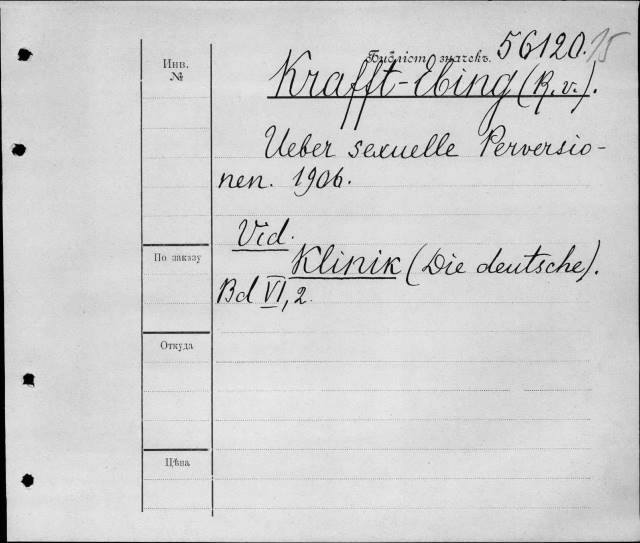 Инв.
№
Библіот. значекъ. 56120.
15
Krafft-Ebing (R. v.).
Ueber sexuelle Perversio-
nen. 1906.
Vid.
Klinik (Die deutsche).
Bd VI, 2.
По заказу
Откуда
Цѣна